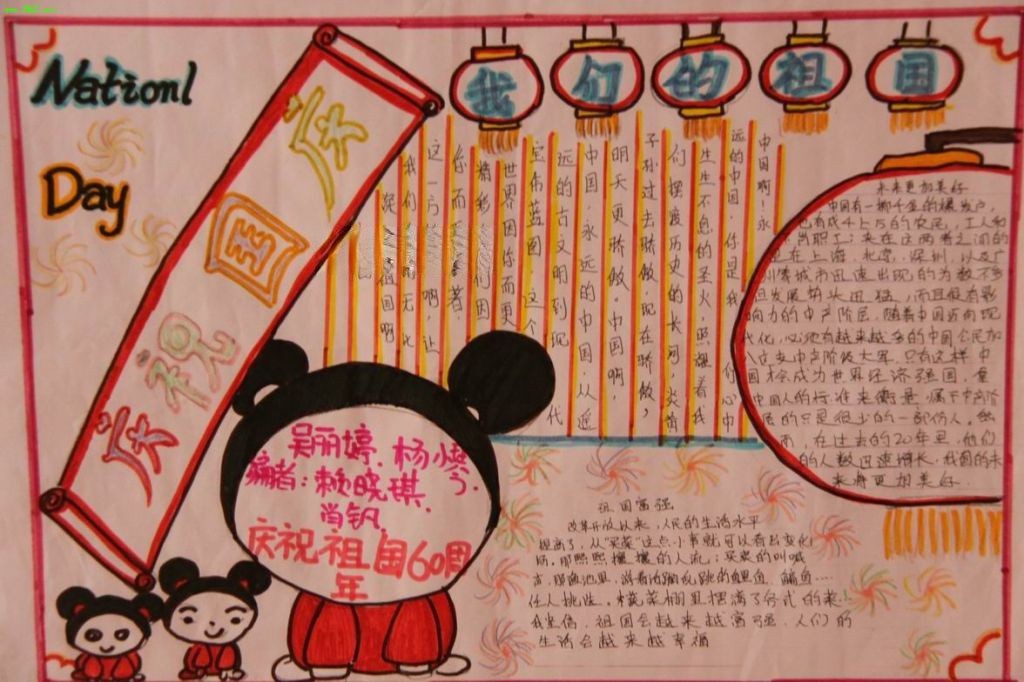 Nationl
Day
庆祝国庆
我们的祖国
中国啊!永
远的中国.你是我们心中
生生不息的圣火,照耀着我
们摆渡历史的长河.炎黄
子孙过去骄傲,现在骄傲,
明天更骄傲.中国啊,
中国.永远的中国.从遥
远的古文明到现代
宏伟蓝图.这个
世界因你而更
精彩.们因
你而
这一方
我们无比
祖国啊
未来更加美好
中国有一掷千金的爆发户,
也有成千上万的农民,工人和
下岗职工;来在这两者之间的
是在上海,北京,深圳,以及广
州等城市迅速出现的为数不多
但发展势头迅猛,而且极有影
响力的中产阶层.随着中国迈向现
代化,必将有越来越多的中国公民加
入这支中产阶级大军.只有这样中
国才会成为世界经济强国.拿
中国人的标准来衡量.属于中产阶
层的只是很少的一部份人.然
而,在过去的20年里,他们
的人数迅速增长.我国的未
来将更加美好.
吴丽婷.杨小燮
编者:赖晓琪.
肖钒
庆祝祖国60周
年
祖国富强
改革开放以来,人民的生活水平
提高了,从"买菜"这点小事就可以看出变化
场.那熙熙攘攘的人流;买卖的叫喊
声.那鱼池里.游着活蹦乱跳的鲤鱼.鳊鱼……
任人挑选.蔬菜棚里摆满了各式的菜.
我坚信.祖国会越来越富强.人们的
生活会越来越幸福